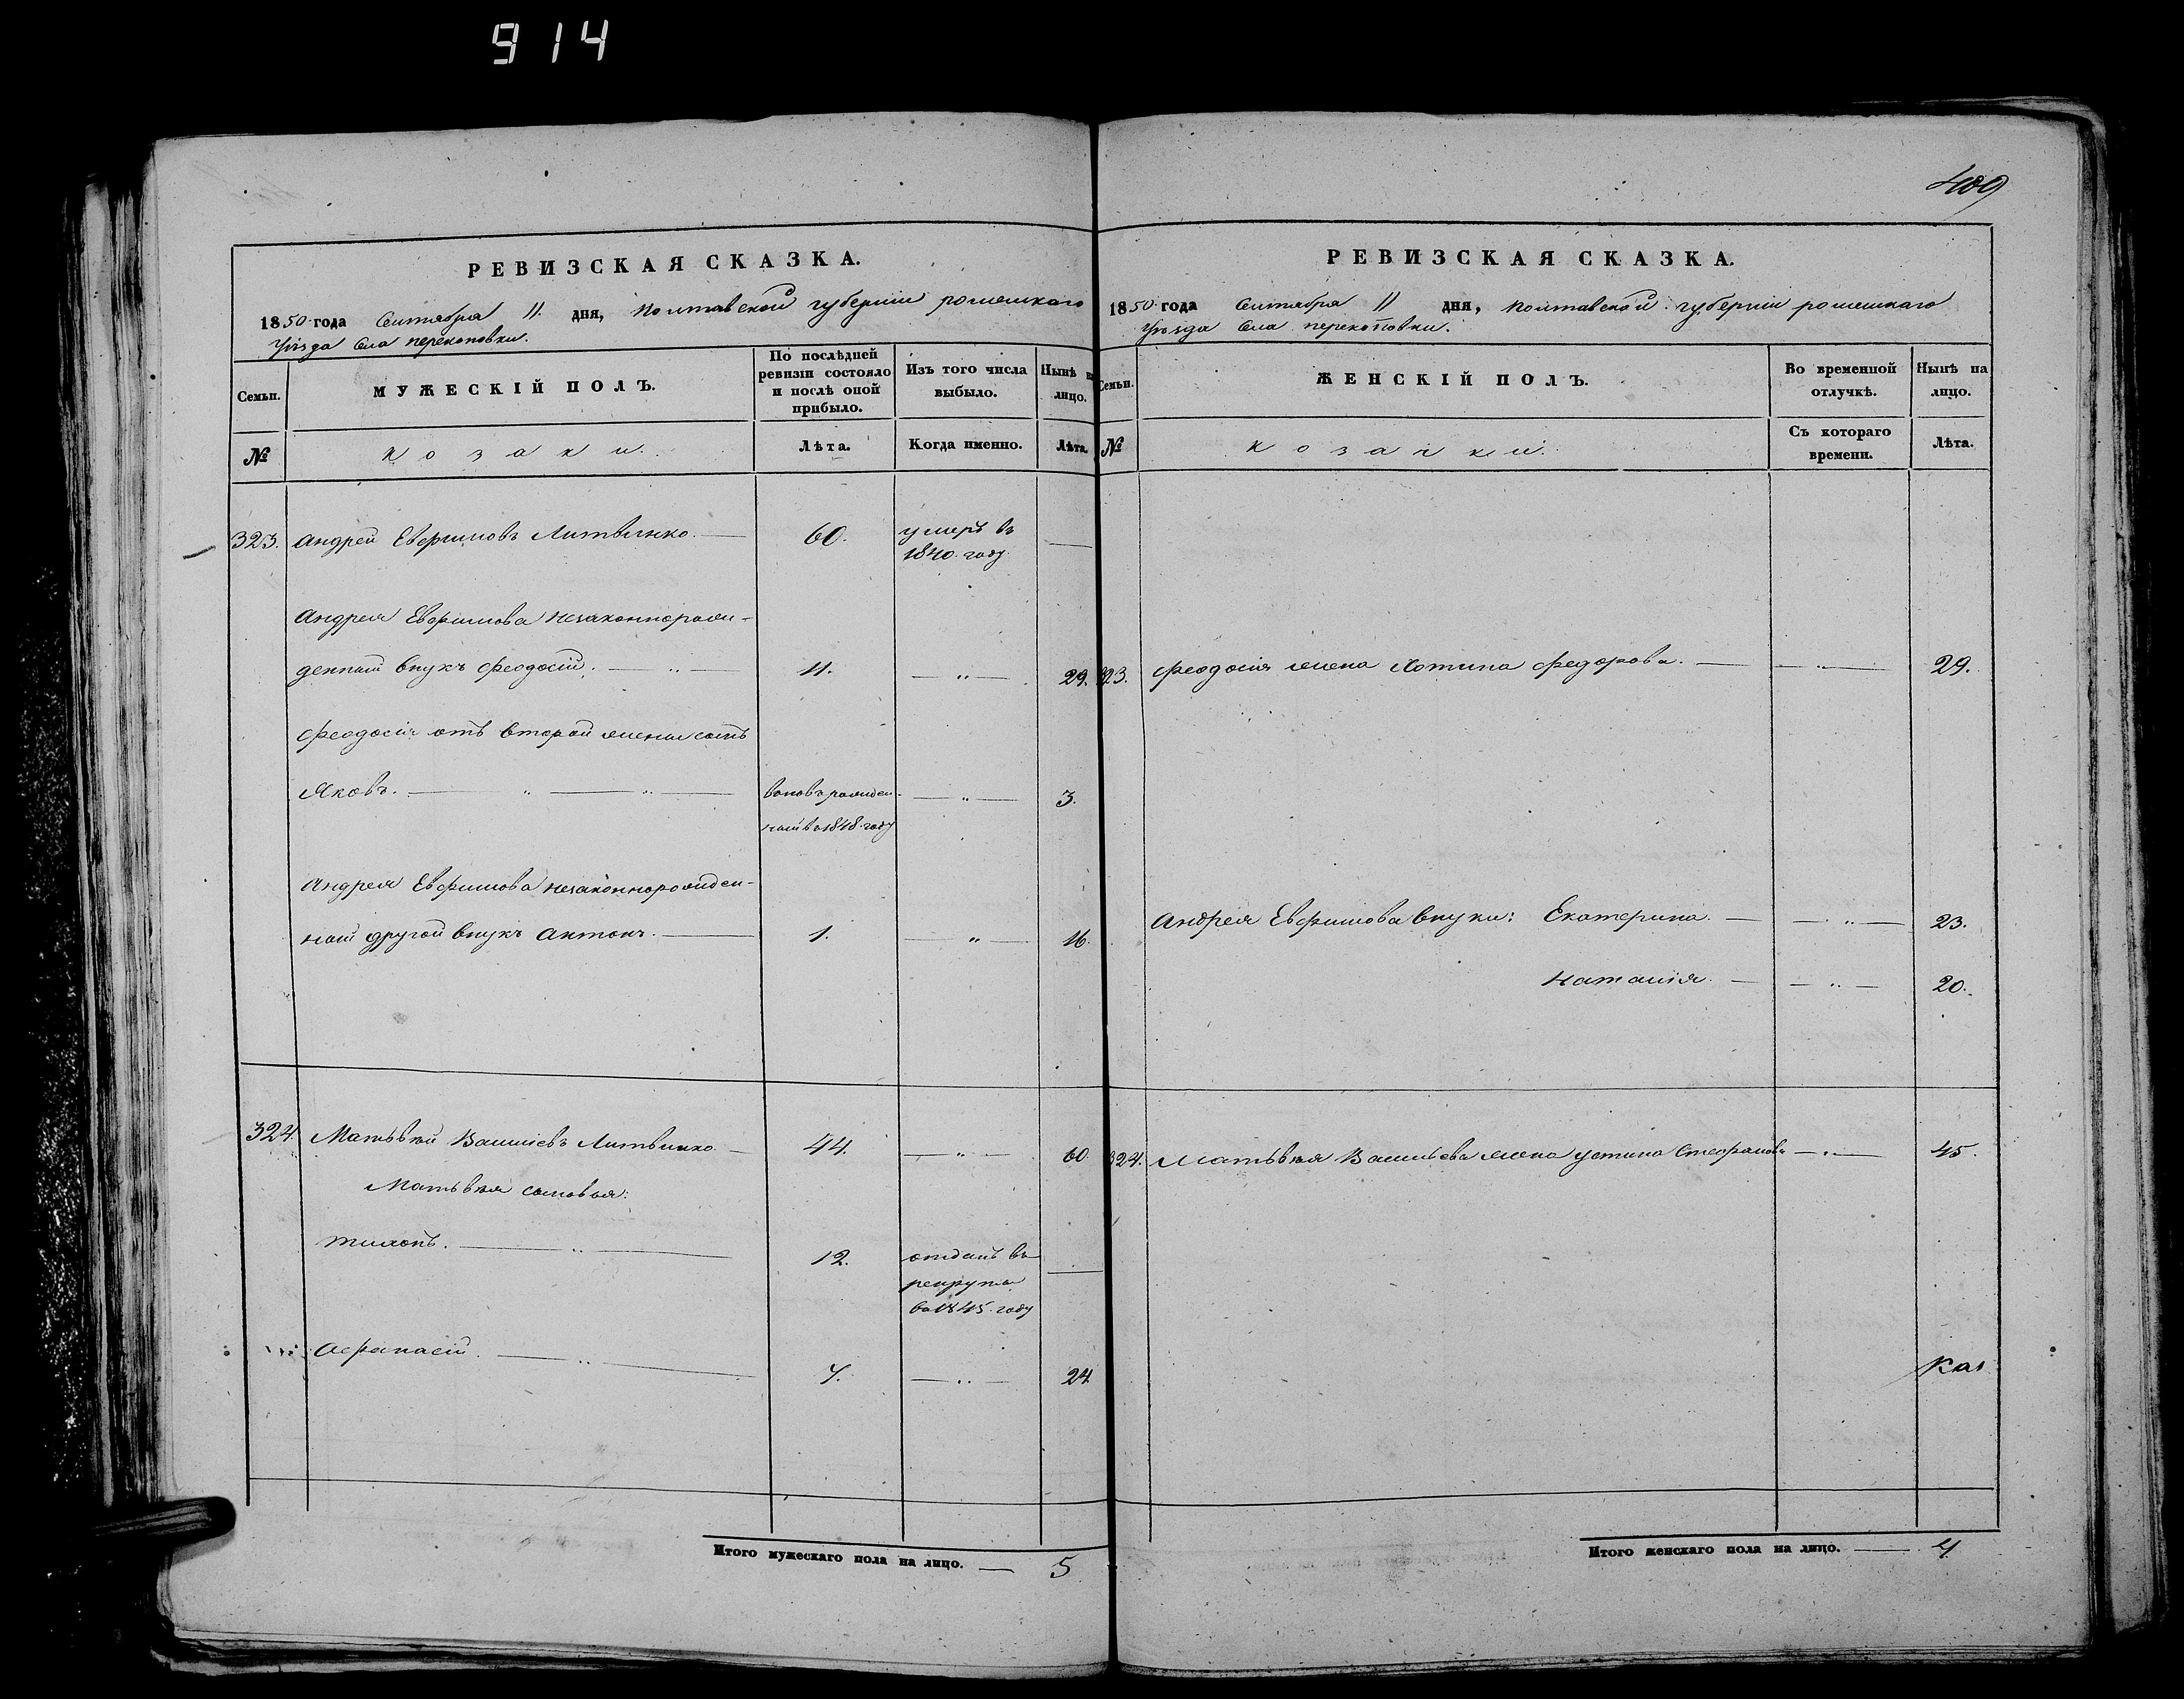 914
409
РЕВИЗСКАЯ СКАЗКА.
1850 года Сентября 11 дня, Полтавской губернiи роменскаго
Уѣзда Села перекоповки.
Семьи.
МУЖЕСКIЙ ПОЛЪ.
По послѣдней ревизiи состояло и послѣ оной прибыло.
Изъ того числа выбыло.
Нынѣ на лицо.
№
козаки.
Лѣта.
Когда именно.
Лѣта.
323. Андрей Евфимовъ Литвинко. 60. умеръ въ
1840. году
Андрея Евфимова незаконнорож-
денный внукъ Феодосiй. 11. 29.
Феодосiя отъ второй жены сынъ
Яковъ. вновь рожден- 3.
ный въ 1848 году
Андрея Евфимова незаконнорожден-
ный другой внукъ Антонъ. 1. 16.
324. Матьвѣй Васильевъ Литвинко. 44. 60.
Матьвѣя сыновья:
Тихонъ. 12. отданъ въ
рекруты
въ 1845. году
Афанасiй. 7. 24.
Итого мужескаго пола на лицо. 5
РЕВИЗСКАЯ СКАЗКА.
1850 года Сентября 11 дня, Полтавской губернiи роменскаго
Уѣзда Села перекоповки.
Семьи.
ЖЕНСКIЙ ПОЛЪ.
Во временной отлучкѣ.
Нынѣ на лицо.
№
козачки.
Съ котораго времени.
Лѣта.
323. Феодосiя жена Хотина Федорова. 29.
Андрея Евфимова внуки: Екатерина. 23.
Наталiя. 20.
324. Матьвѣя Васильева жена Устина Стефанова 45.
Итого женскаго пола на лицо. 4